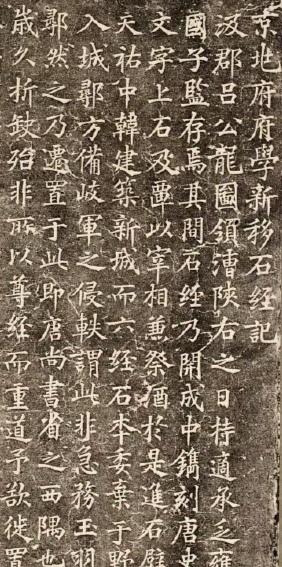 京兆府府學新移石經記
汲郡呂公龍圖領漕陝右之日持適承乏雍
國子監存焉其間石經乃開成中鐫刻唐史
文字上石及覃以宰相兼祭酒於是進石壁
天祐中韓建築新城而六經石本委棄于野
入城鄩方備岐軍之侵軼謂此非急務玉羽
鄩然之乃遷置于此即唐尚書省之西隅也
歲久折缺殆非所以尊經而重道予欲徙置